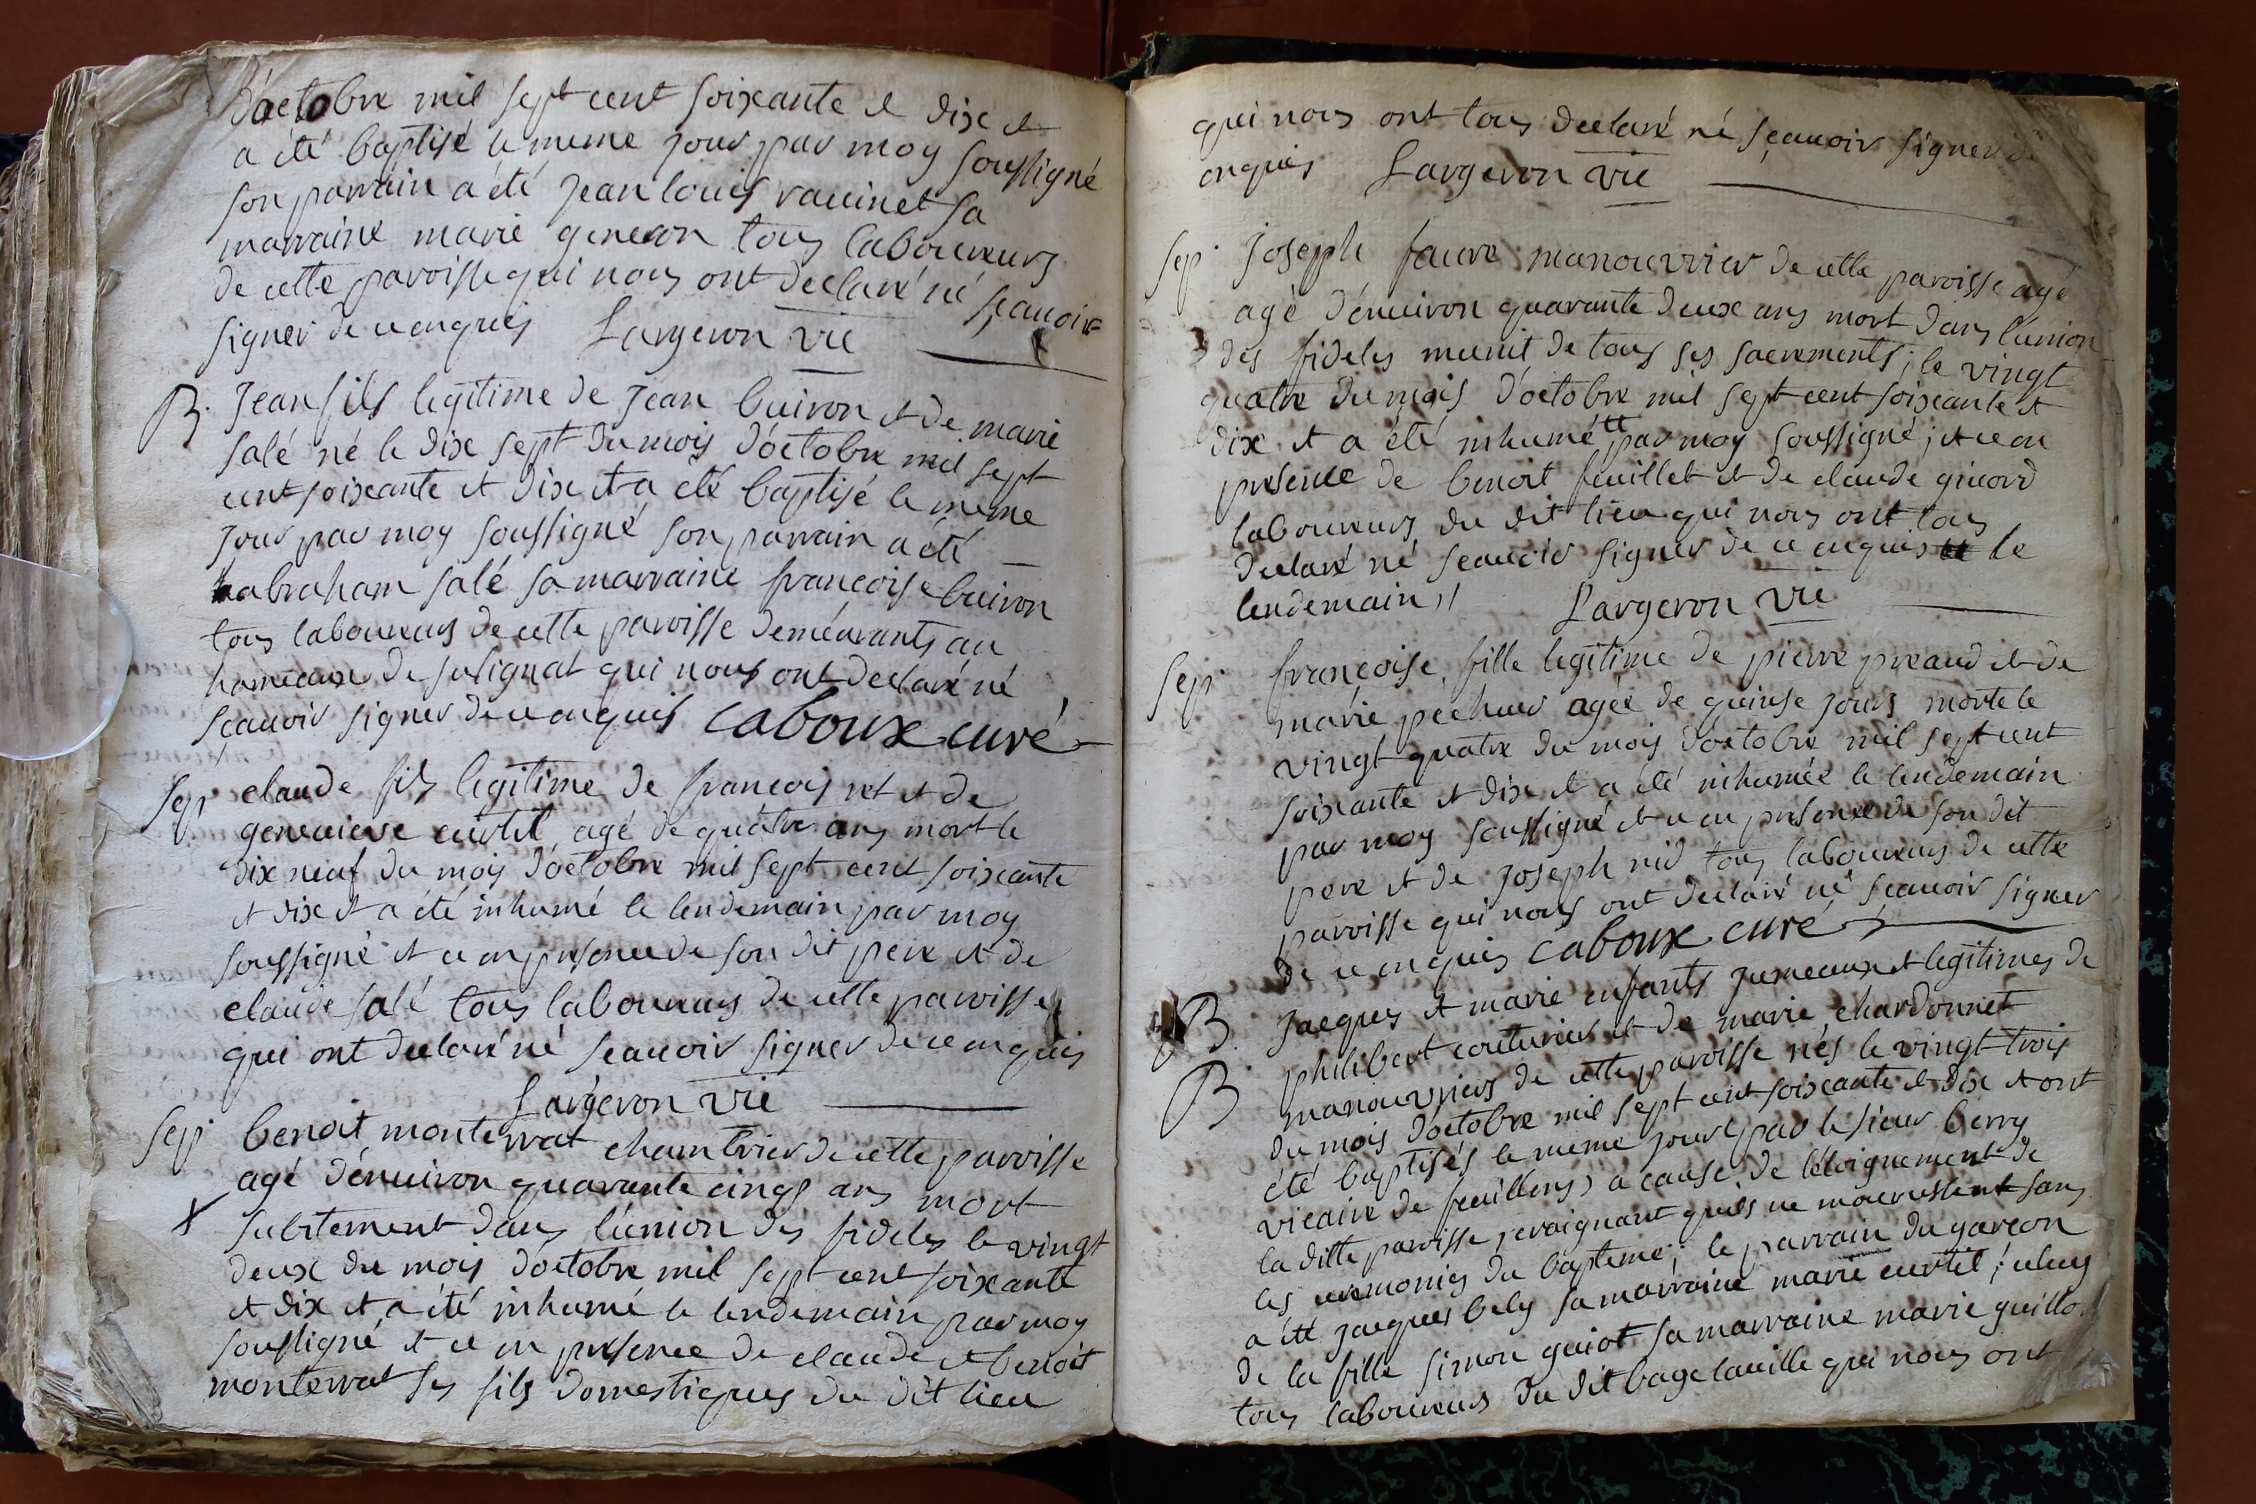 D'octobre mil sept cent soixante et dix et
a été baptisé le meme jour par moy soussigné
son parrain a été jean louis raccinet sa
marraine marie generon tous laboureurs
de cette paroisse qui nous ont declaré né sçauoir
signer de ce enquis Largeron vic
B. Jean fils legitime de Jean buiron et de marie
salé né le dix sept du mois d'octobre mil sept
cent soixante et dix et a été baptisé le meme
jour par moy soussigné son parrain a été
abraham salé sa marraine francoise buiron
tous laboureurs de cette paroisse demeurants au
hameaux de solignat qui nous ont declaré né
sçauoir signer de ce enquis Caboux curé
sep. claude fils legitime de francois ret et de
genevieve curtil agé de quatre ans mort le
dix neuf du mois d'octobre mil sept cent soixante
et dix et a été inhumé le lendemain par moy
soussigné et ce en presence de son dit pere et de
claude salé tous laboureurs de cette paroisse
qui ont declaré né scauoir signer de ce enquis
Largeron vic
sep. benoit monterrat chambrier de cette paroisse
agé d'enuiron quarante cinqs ans mort
subitement dans l'union des fideles le vingt
deux du mois d'octobre mil sept cent soixante
et dix et a été inhumé le lendemain par moy
soussigné et ce en presence de claude et benoit
monterrat ses fils domestiques du dit lieu
qui nous ont tous declaré né sçauoir signer de
enquis Largeron vic
sep. Joseph faure manouvrier de cette paroisse agé
agé d'enuiron quarante deux ans mort dans l'union
des fideles munit de tous ses sacrements; le vingt
quatre du mois d'octobre mil sept cent soixante et
dix et a été inhumé par moy soussigné; et ce en
presence de benoit feuillet et de claude
laboureurs du dit lieu qui nous ont tous
declaré né scauoir signer de ce enquis le
lendemain // Largeron vic
sep. francoise fille legitime de pierre preaud et de
marie pecheur agée de quinse jours morte le
vingt quatre du mois d'octobre mil sept cent
soixante et dix et a été inhumée le lendemain
par moy soussigné et ce en presence de son dit
pere et de joseph nid tous laboureurs de cette
paroisse qui nous ont declaré né scauoir signer
de ce enquis Caboux curé
B. Jacques et marie enfants jumeaux et legitimes de
philibert couturier et de marie chardonnet
B. manouvriers de cette paroisse nés le vingt trois
du mois d'octobre mil sept cent soixante et dix et ont
été baptisés le meme jour (par le sieur berry
vicaire de feuillens) a cause de l'eloignement de
la ditte paroisse, craignant quils ne mourussent sans
les ceremonies du bapteme; le parrain du garcon
a été jacques bely sa marraine marie curtil; celuy
de la fille simon guiot sa marraine marie guillo
tous laboureurs du dit bagelauille qui nous ont